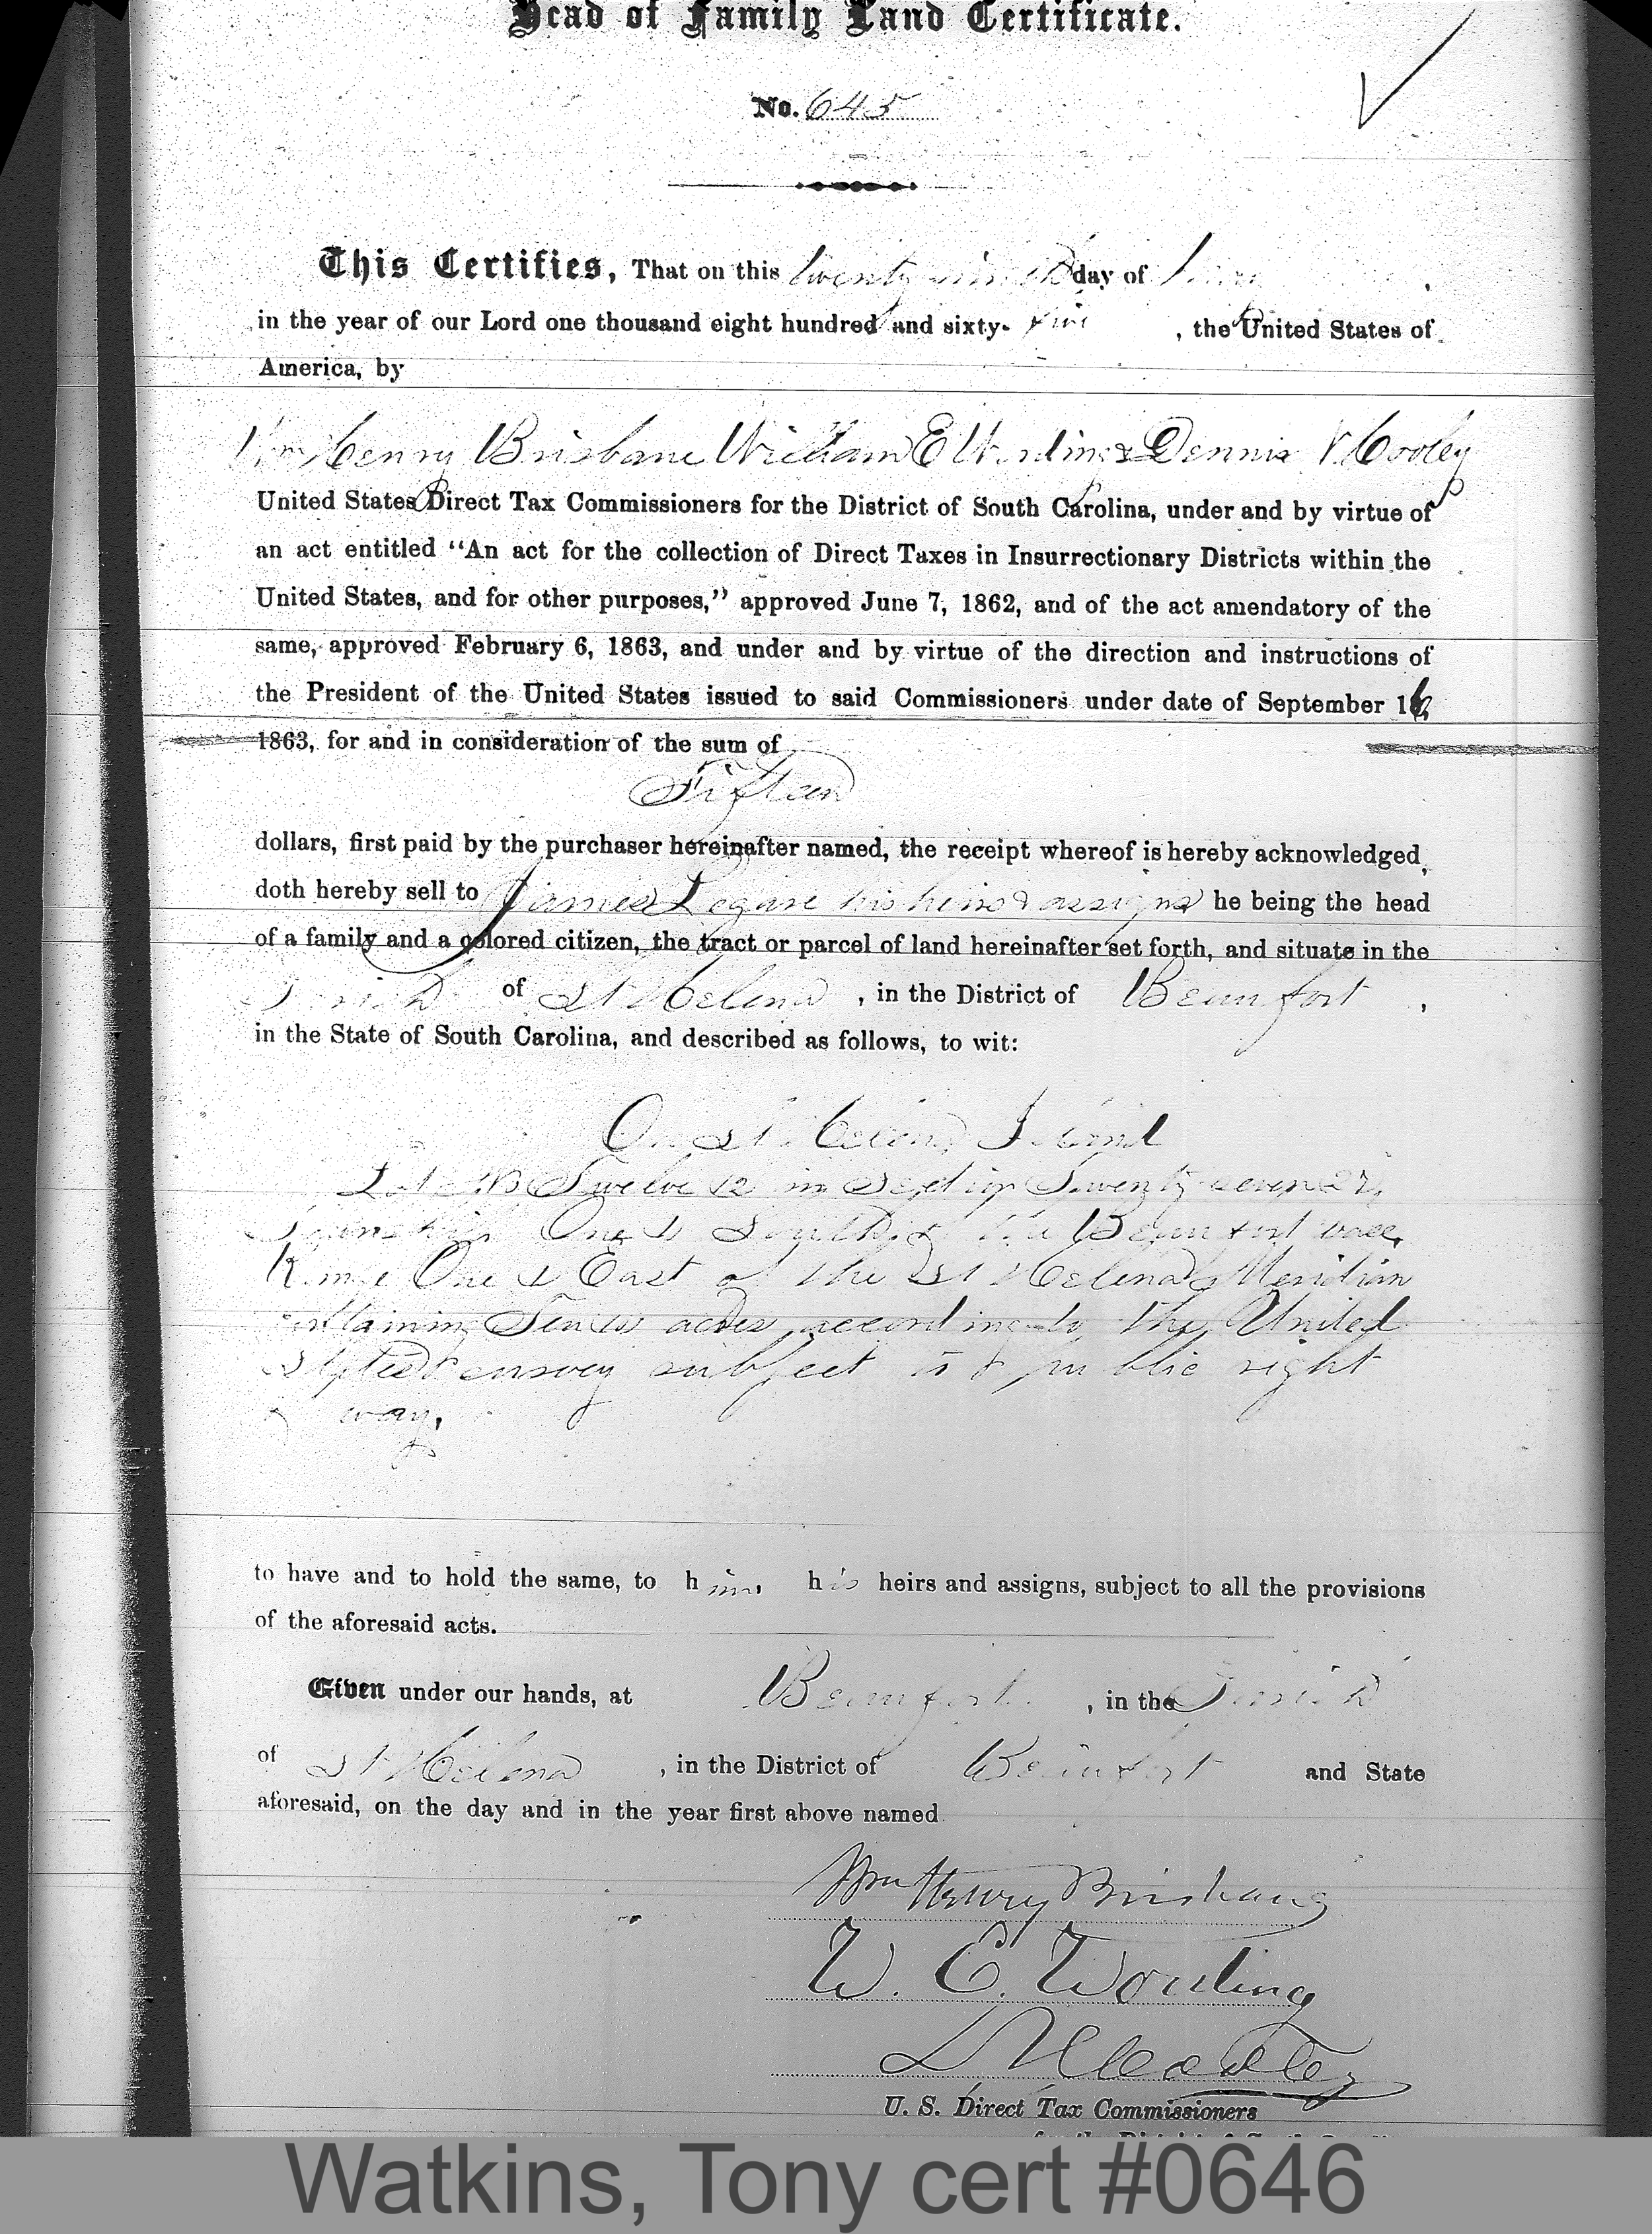 Head of Family Land Certificate.
No. 645
This Certifies, That on this twenty ninth day of
in the year of our Lord one thousand eight hundred and sixty- five , the United States of
America, by
Wm Henry Brisbane William E Wording & Dennis N Cooley
United States Direct Tax Commissioners for the District of South Carolina, under and by virtue of
an act entitled “An act for the collection of Direct Taxes in Insurrectionary Districts within the
United States, and for other purposes,” approved June 7, 1862, and of the act amendatory of the
same, approved February 6, 1863, and under and by virtue of the direction and instructions of
the President of the United States issued to said Commissioners under date of September 16,
1863, for and in consideration of the sum of
Fifteen
dollars, first paid by the purchaser hereinafter named, the receipt whereof is hereby acknowledged,
doth hereby sell to James Legare his heirs & assigns he being the head
of a family and a colored citizen, the tract or parcel of land hereinafter set forth, and situate in the
Parish of St Helena , in the District of Beaufort ,
in the State of South Carolina, and described as follows, to wit:
On St Helena Island
Lot No Twelve 12 in Section Twenty seven 27,
Township One 1 South of the Beaufort base,
Range One 1 East of the St Helena Meridian
containing Ten 10 acres according to the United
States survey subject to public right
of way.
to have and to hold the same, to him, his heirs and assigns, subject to all the provisions
of the aforesaid acts.
Given under our hands, at Beaufort , in the Parish
of St Helena , in the District of Beaufort and State
aforesaid, on the day and in the year first above named
Wm Henry Brisbane
W. E. Wording
D N Cooley
U. S. Direct Tax Commissioners
Watkins, Tony cert #0646